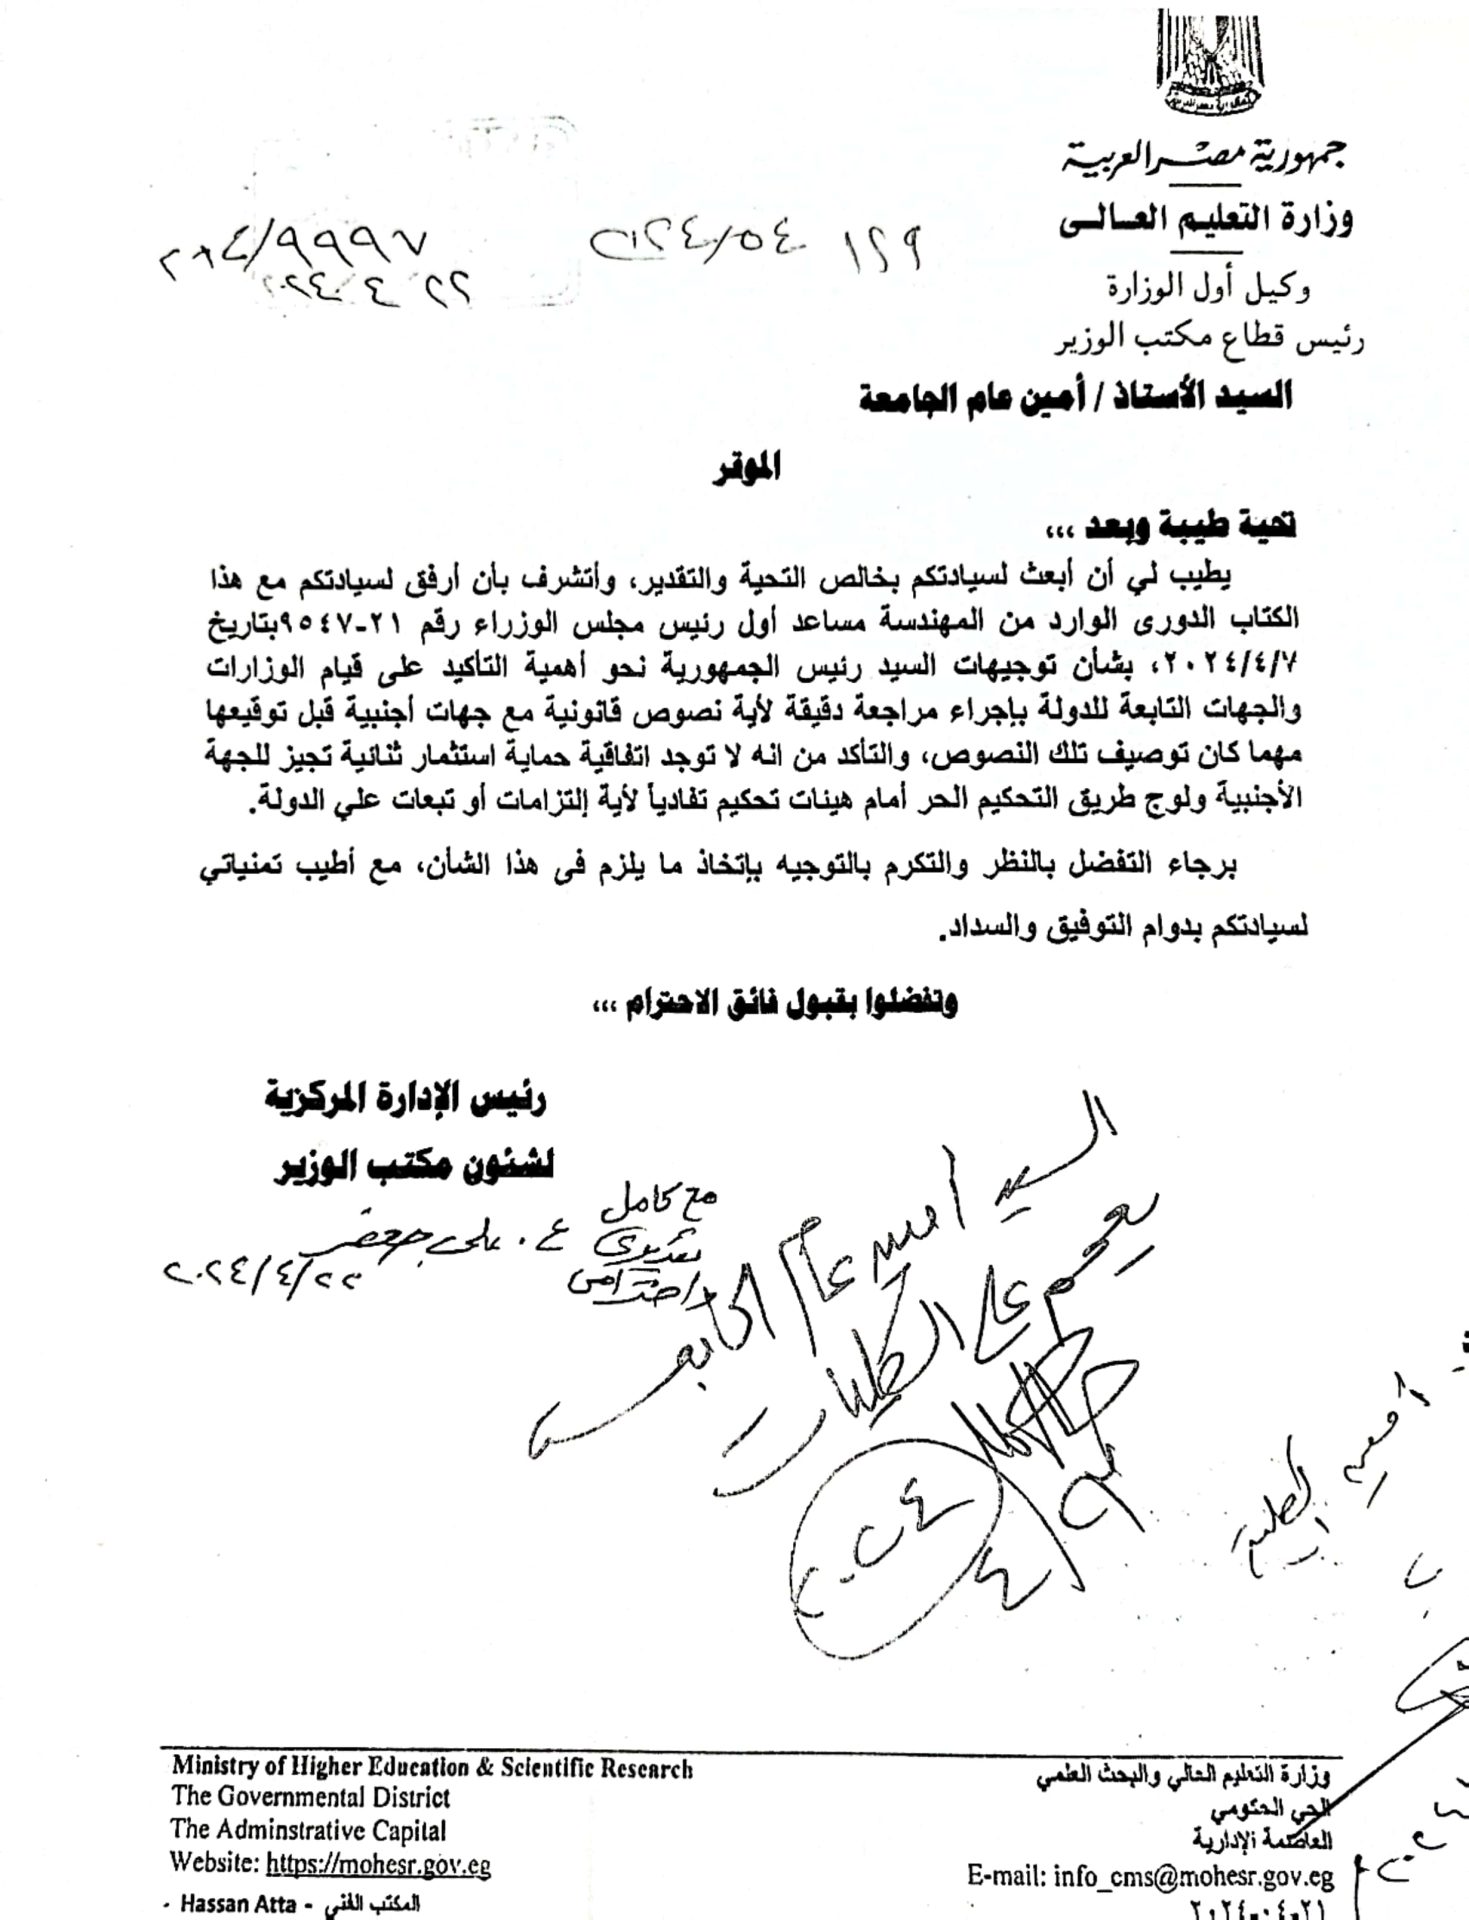 جمهورية مصر العربية
وزارة التعليم العالى
وكيل أول الوزارة
رئيس قطاع مكتب الوزير
٩٩٩٧
٢٢ ٤ ٢٠٢٤
السيد الأستاذ / أمين عام الجامعة
الموقر
تحية طيبة وبعد ،،،
يطيب لي أن أبعث لسيادتكم بخالص التحية والتقدير، وأتشرف بأن أرفق لسيادتكم مع هذا
الكتاب الدورى الوارد من المهندسة مساعد أول رئيس مجلس الوزراء رقم ٢١-٩٥٤٧بتاريخ
٢٠٢٤/٤/٧، بشأن توجيهات السيد رئيس الجمهورية نحو أهمية التأكيد على قيام الوزارات
والجهات التابعة للدولة بإجراء مراجعة دقيقة لأية نصوص قانونية مع جهات أجنبية قبل توقيعها
مهما كان توصيف تلك النصوص، والتأكد من انه لا توجد اتفاقية حماية استثمار ثنائية تجيز للجهة
الأجنبية ولوج طريق التحكيم الحر أمام هيئات تحكيم تفادياً لأية إلتزامات أو تبعات علي الدولة.
برجاء التفضل بالنظر والتكرم بالتوجيه بإتخاذ ما يلزم فى هذا الشأن، مع أطيب تمنياتي
لسيادتكم بدوام التوفيق والسداد.
وتفضلوا بقبول فائق الاحترام ،،،
رئيس الإدارة المركزية
لشئون مكتب الوزير
مع كامل
تقديرى
واحترامى
٢٠٢٤/٤/٢٢
السيد امين عام الجامعة
يعمم على الكليات
٢٠٢٤
Ministry of Higher Education & Scientific Research
The Governmental District
The Adminstrative Capital
Website: https://mohesr.gov.eg
- Hassan Atta - المكتب الفني
وزارة التعليم العالي والبحث العلمي
الحي الحكومي
العاصمة الإدارية
E-mail: info_cms@mohesr.gov.eg
٢٠٢٤-٠٤-٢١